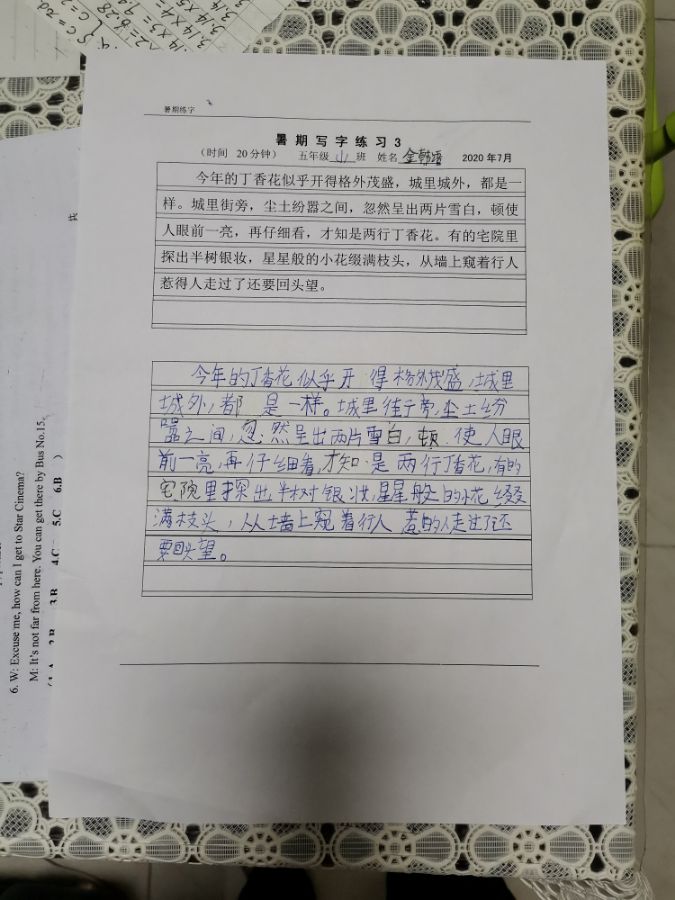 3.14×3=
3.14×4=
3.14×5
暑期练字
暑 期 写 字 练 习 3
（时间 20分钟） 五年级 山 班 姓名 金 2020 年7月
今年的丁香花似乎开得格外茂盛，城里城外，都是一
样。城里街旁，尘土纷嚣之间，忽然呈出两片雪白，顿使
人眼前一亮，再仔细看，才知是两行丁香花。有的宅院里
探出半树银妆，星星般的小花缀满枝头，从墙上窥着行人
惹得人走过了还要回头望。
今年的丁香花似乎开得格外茂盛，城里
城外，都是一样。城里街旁，尘土纷
嚣之间，忽然呈出两片雪白，顿使人眼
前一亮，再仔细看，才知是两行丁香花，有的
宅院里探出半树银妆，星星般的小花缀
满枝头，从墙上窥着行人惹的人走过了还
要回头望。
6. W: Excuse me, how can I get to Star Cinema?
M: It's not far from here. You can get there by Bus No.15.
3.B 4.C 5.C 6.B )